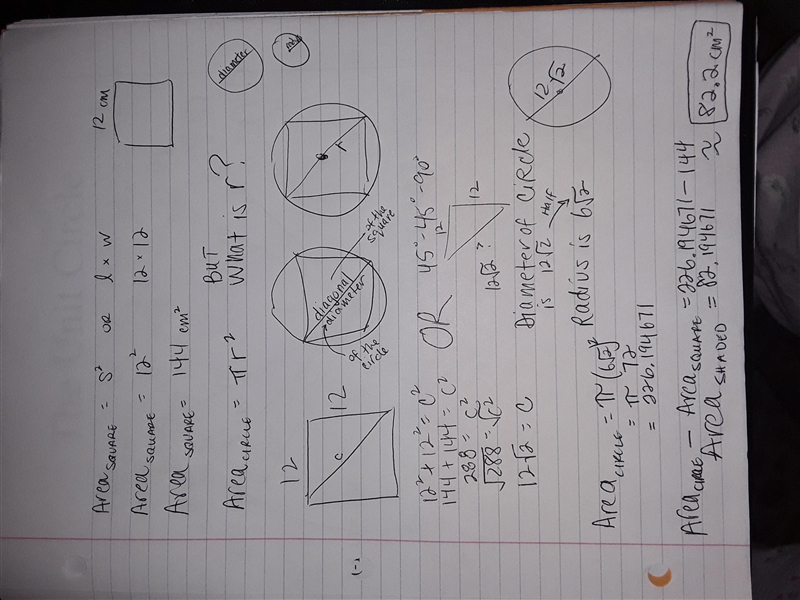 Area SQUARE = S² OR l × w 12 cm
Area SQUARE = 12² 12 × 12
Area SQUARE = 144 cm²
diameter
Area CIRCLE = πr² BUT What is r?
12
12
c
diagonal
diameter
of the square
of the circle
r
12² + 12² = c²
144 + 144 = c²
288 = c²
√288 = √c²
12√2 = c
OR
45°-45°-90°
12
12
12√2 ?
Diameter of CIRCLE
is 12√2 HALF
Radius is 6√2
12√2
Area CIRCLE = π(6√2)²
= π 72
= 226.194671
(-)
Area CIRCLE - Area SQUARE = 226.194671 - 144
Area SHADED = 82.194671 ≈ 82.2 cm²